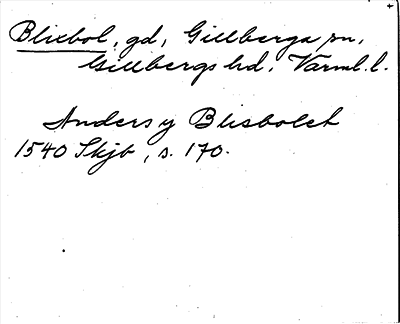 Blixbol, gd, Gillberga sn,
Gillbergs hd, Värml. l.
Anders y Blisbolet
1540 Skjb, s. 170.